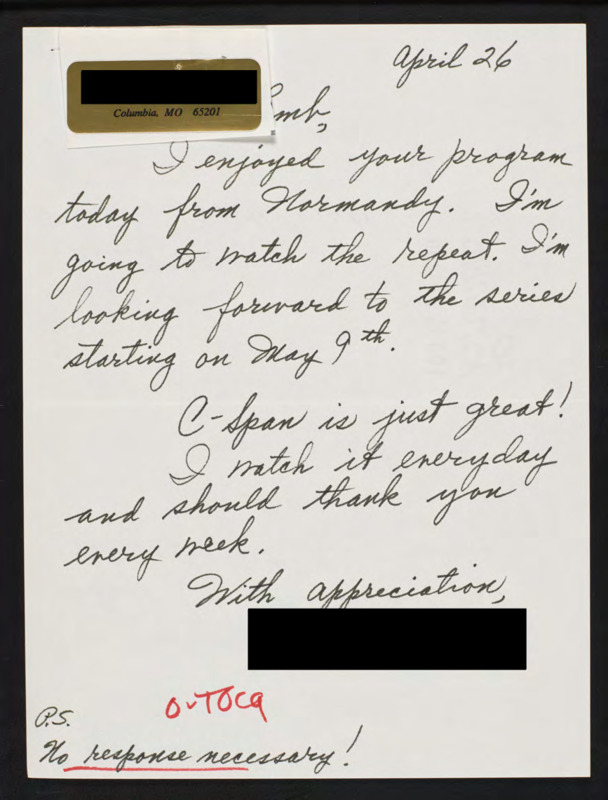 April 26
Columbia, MO 65201
I enjoyed your program
today from Normandy. I'm
going to watch the repeat. I'm
looking forward to the series
starting on May 9th.
C-Span is just great!
I watch it everyday
and should thank you
every week.
With appreciation,
O-TOCQ
P.S.
No response necessary!